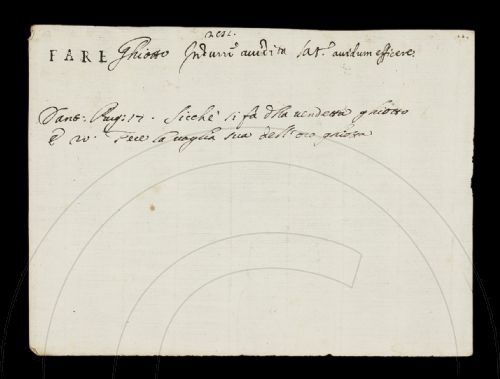 FARE Ghiotto Indurre avidità Lat. avidum efficere.
Dant. Purg: 17. Sicchè si fà dlla vendetta ghiotto
E 20. Fece la voglia sua dell'oro ghiotta